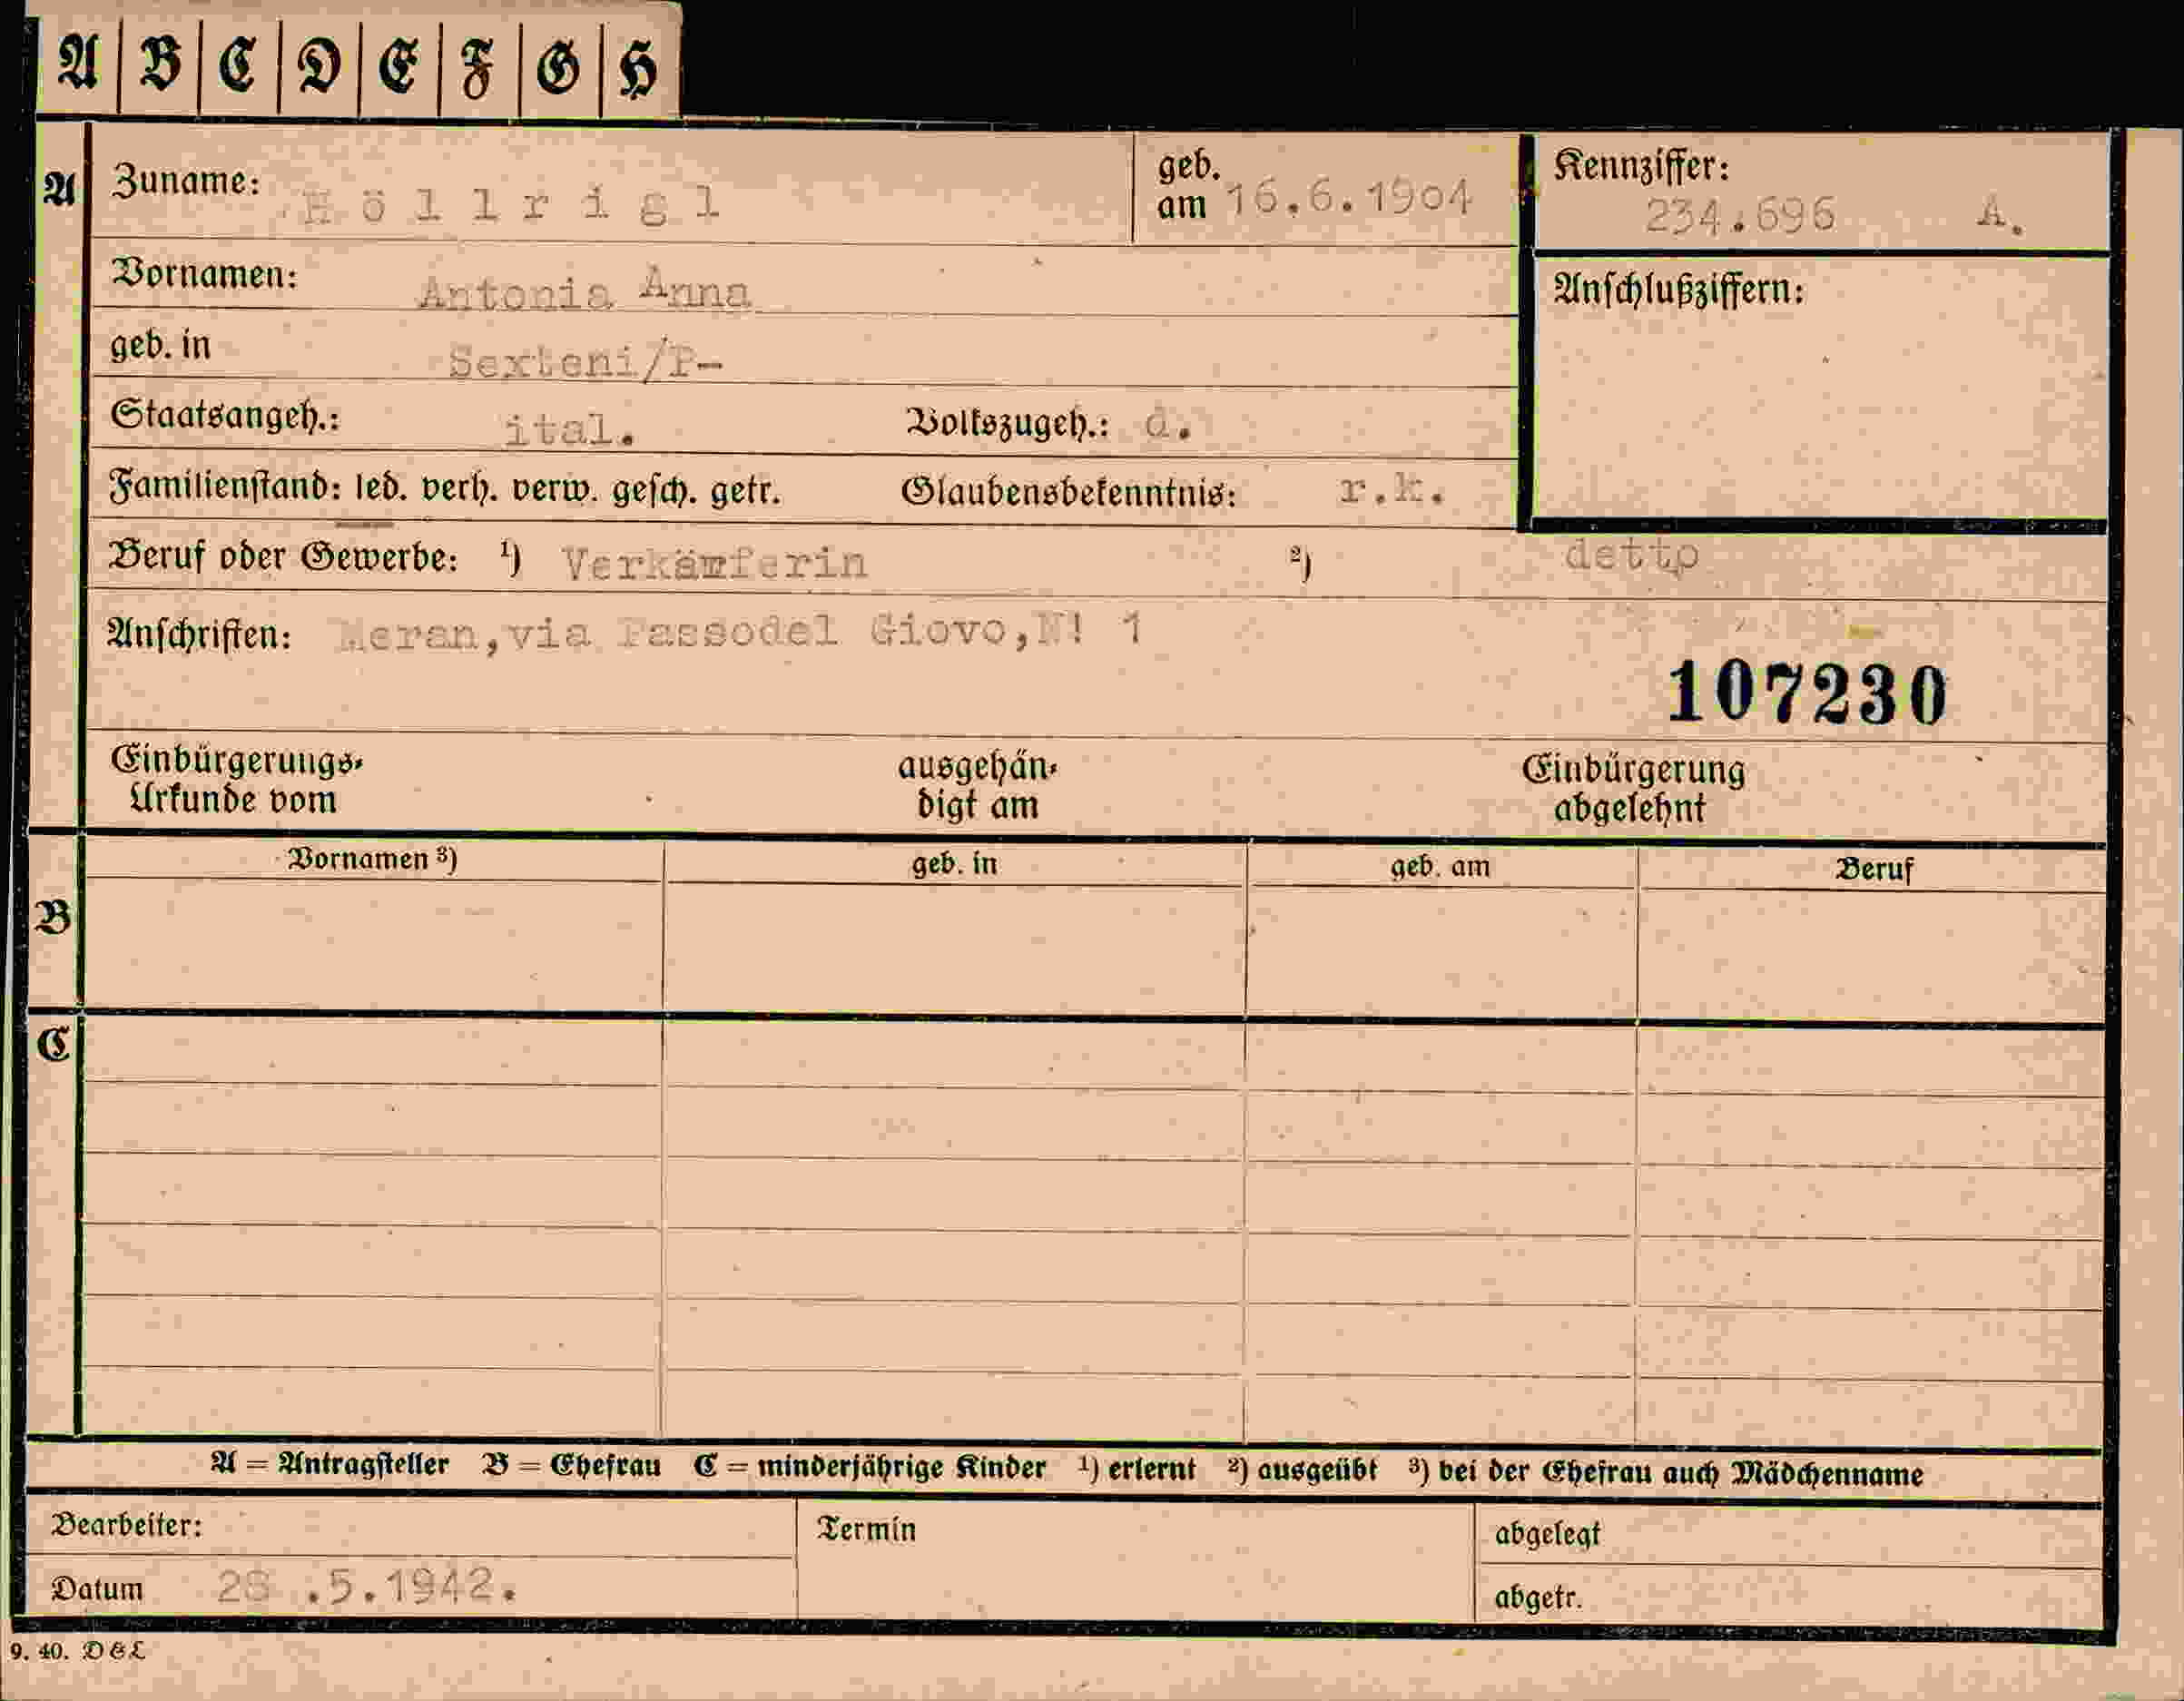 A B C D E F G H
A Zuname: Höllrigl geb. am 16.6.1904 Kennziffer: 234.696 A.
Vornamen: Antonia Anna Anschlußziffern:
geb. in Sexteni/P-
Staatsangeh.: ital. Volkszugeh.: d.
Familienstand: led. verh. verw. gesch. getr. Glaubensbekenntnis: r.k.
Beruf oder Gewerbe: ¹) Verkämferin ²) detto
Anschriften: Meran,via Passodel Giovo,N! 1
107230
Einbürgerungs- ausgehän- Einbürgerung
Urkunde vom digt am abgelehnt
Vornamen ³) geb. in geb. am Beruf
B
C
A = Antragsteller B = Ehefrau C = minderjährige Kinder ¹) erlernt ²) ausgeübt ³) bei der Ehefrau auch Mädchenname
Bearbeiter: Termin abgelegt
Datum .5.1942. abgetr.
9. 40. D&L